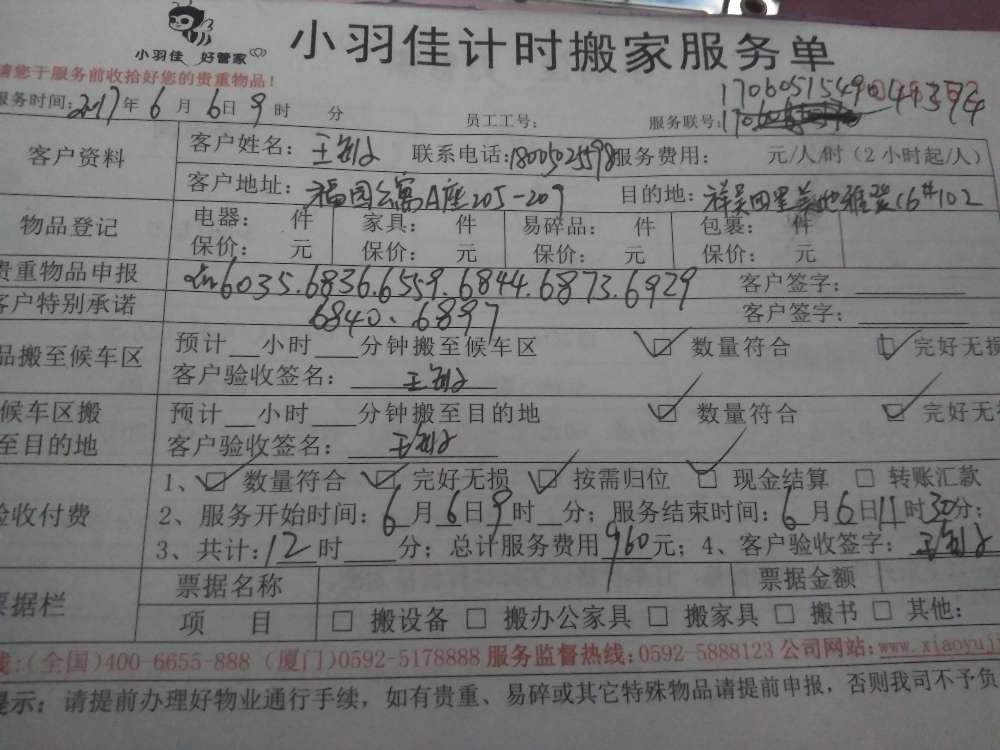 小羽佳 好管家
小羽佳计时搬家服务单
请您于服务前收拾好您的贵重物品！
服务时间：2017年6月6日9时 分 员工工号： 服务联号：
客户资料
客户姓名： 联系电话：18005025598 服务费用： 元/人/时（2小时起/人）
客户地址：福园公寓A座205-209 目的地：
物品登记
电器： 件 家具： 件 易碎品： 件 包裹： 件
保价： 元 保价： 元 保价： 元 保价： 元
贵重物品申报 6035.6836.6559.6844.6873.6929 客户签字：
客户特别承诺 6840、6897 客户签字：
品搬至候车区
预计__小时___分钟搬至候车区 数量符合 完好无损
客户验收签名：
候车区搬
至目的地
预计__小时___分钟搬至目的地 数量符合 完好无损
客户验收签名：
验收付费
1、数量符合 完好无损 按需归位 现金结算 转账汇款
2、服务开始时间：6月6日9时__分；服务结束时间：6月6日11时30分；
3、共计：12时____分；总计服务费用960元；4、客户验收签字：
票据栏
票据名称 票据金额
项 目 搬设备 搬办公家具 搬家具 搬书 其他：
线：(全国)400-6655-888 (厦门)0592-5178888 服务监督热线：0592-5888123 公司网站：www.xiaoyuj
提示：请提前办理好物业通行手续，如有贵重、易碎或其它特殊物品请提前申报，否则我司不予负